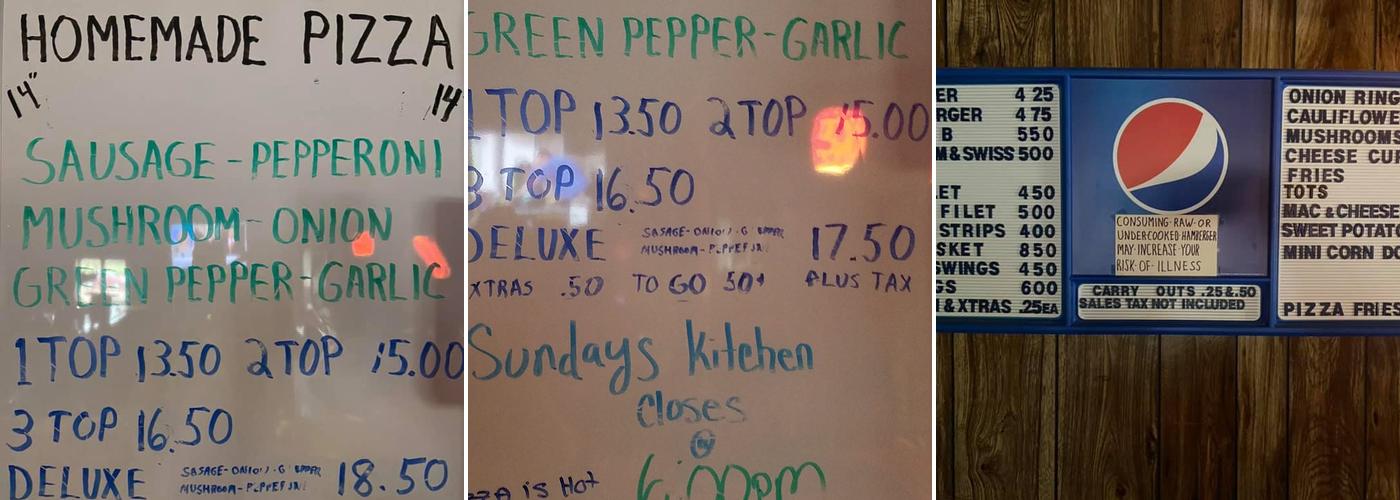 HOMEMADE PIZZA
14" 14
SAUSAGE - PEPPERONI
MUSHROOM - ONION
GREEN PEPPER - GARLIC
1 TOP 13.50 2 TOP 15.00
3 TOP 16.50
DELUXE SASAGE- MUSHROOM- 18.50
GREEN PEPPER - GARLIC
1 TOP 13.50 2 TOP 15.00
3 TOP 16.50
DELUXE SASAGE- MUSHROOM- 17.50
XTRAS .50 TO GO 50¢ PLUS TAX
Sundays Kitchen
Closes
@
6:00pm
is Hot
ER 4 25
RGER 4 75
B 5 50
M & SWISS 5 00
ET 4 50
FILET 5 00
STRIPS 4 00
SKET 8 50
SWINGS 4 50
GS 6 00
& XTRAS .25EA
CONSUMING-RAW-OR
UNDERCOOKED HAMBERGER
MAY INCREASE YOUR
RISK-OF-ILLNESS
CARRY OUTS .25 & .50
SALES TAX NOT INCLUDED
ONION RING
CAULIFLOWE
MUSHROOMS
CHEESE CU
FRIES
TOTS
MAC & CHEESE
SWEET POTATO
MINI CORN DO
PIZZA FRIES